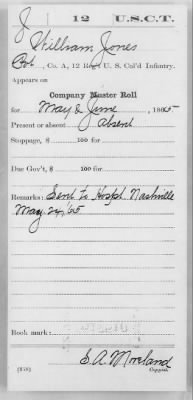 J | 12 | U.S.C.T.
William Jones
Co. A, 12 Reg't U. S. Col'd Infantry.
Appears on
Company Muster Roll
for May & June, 1865
Present or absent Absent
Stoppage, $ 100 for
Due Gov't, $ 100 for
Remarks: Sent to Hospt Nashville
May 24/65
Book mark:
E. A. Moreland
(358) Copyist.